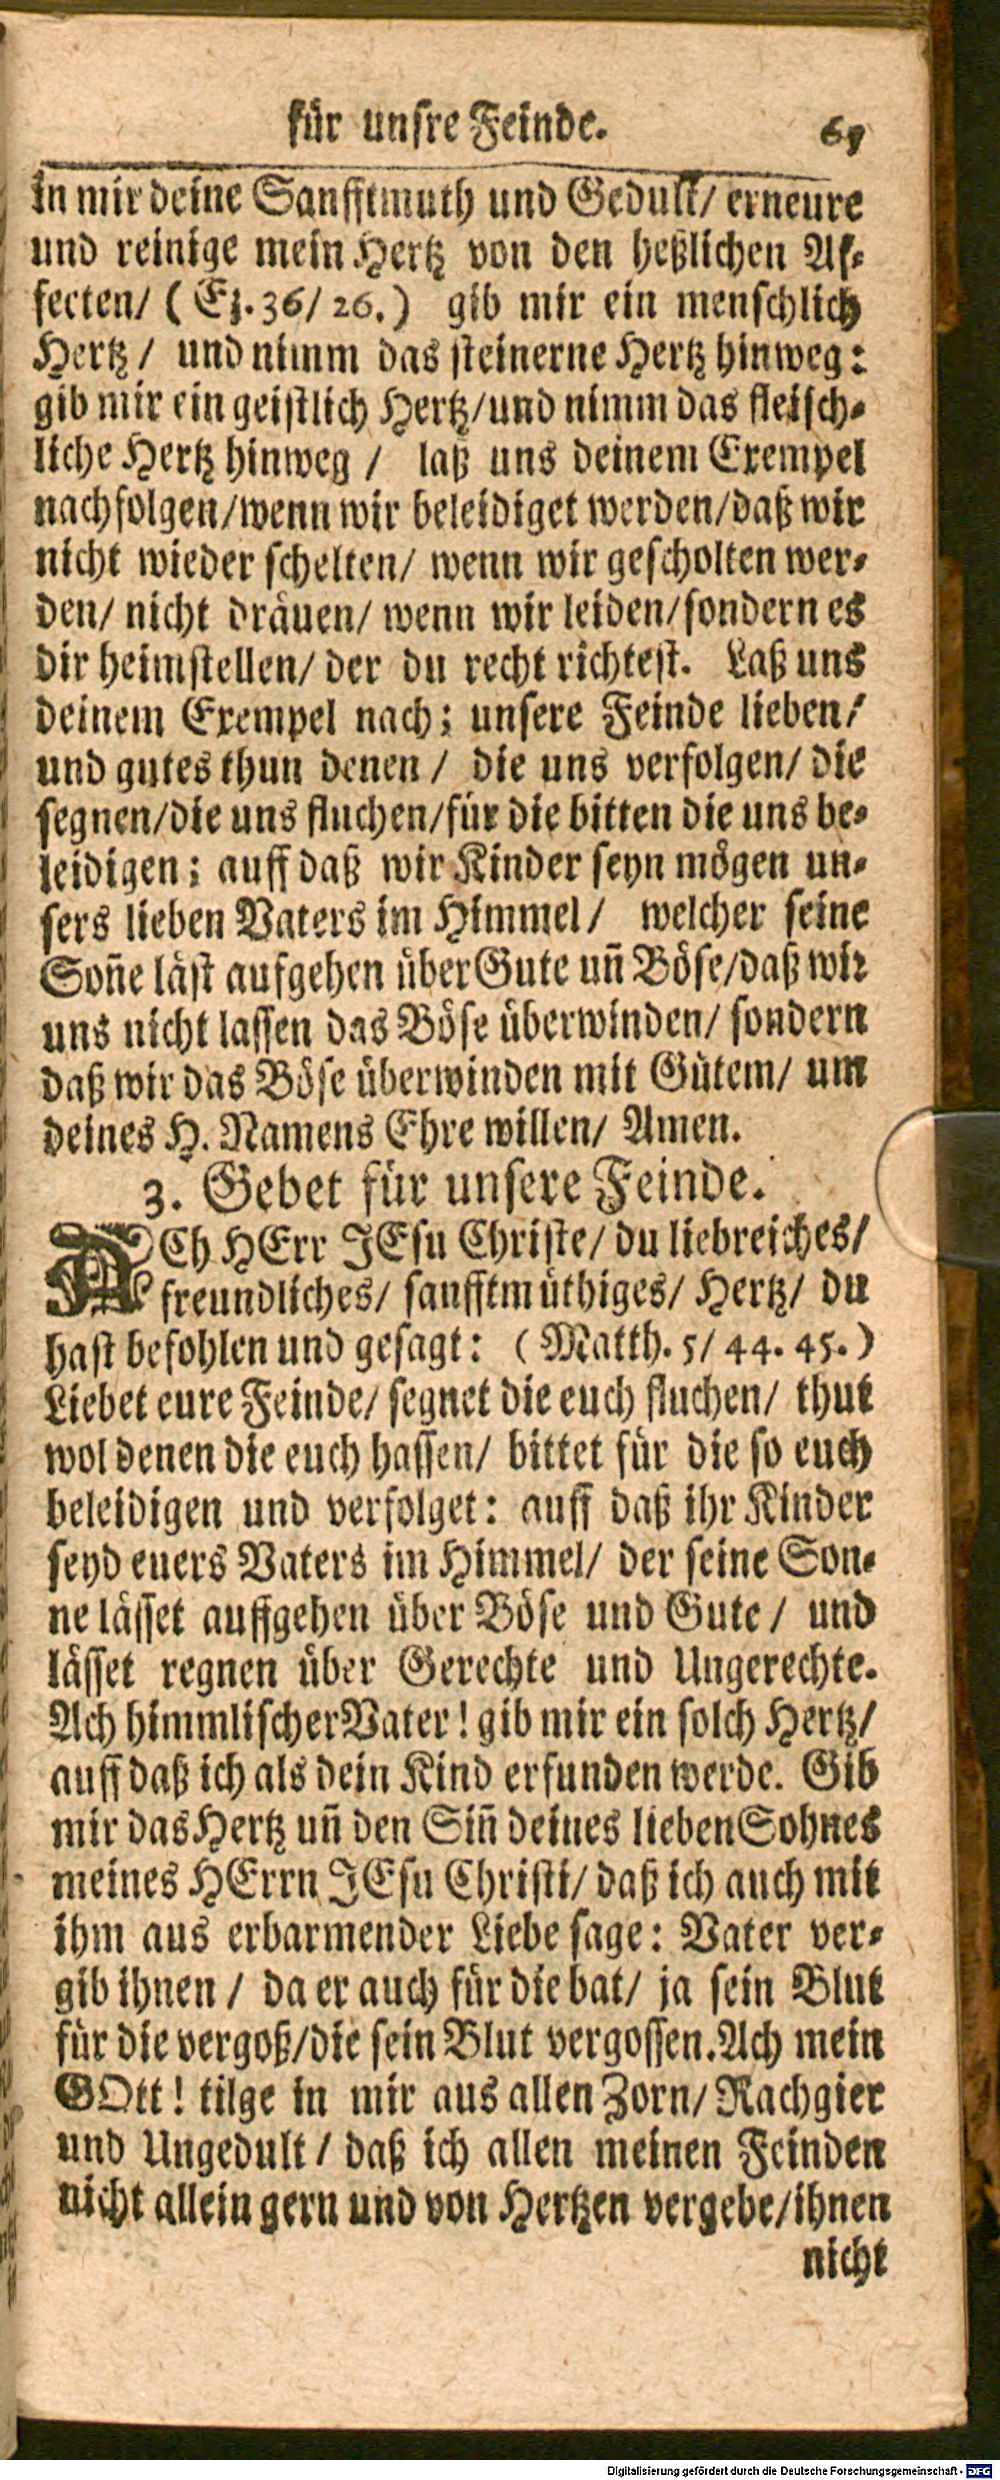 für unsre Feinde. 65
in mir deine Sanfftmuth und Gedult/ erneure
und reinige mein Hertz von den heßlichen Af-
fecten/ (Ez. 36/ 26.) gib mir ein menschlich
Hertz / und nimm das steinerne Hertz hinweg:
gib mir ein geistlich Hertz/und nimm das fleisch-
liche Hertz hinweg / laß uns deinem Exempel
nachfolgen/wenn wir beleidiget werden/daß wir
nicht wieder schelten/ wenn wir gescholten wer-
den/ nicht dräuen/ wenn wir leiden/sondern es
dir heimstellen/ der du recht richtest. Laß uns
deinem Exempel nach; unsere Feinde lieben/
und gutes thun denen / die uns verfolgen/ die
segnen/die uns fluchen/für die bitten die uns be-
leidigen; auff daß wir Kinder seyn mögen un-
sers lieben Vaters im Himmel/ welcher seine
Soñe läst aufgehen über Gute uñ Böse/daß wir
uns nicht lassen das Böse überwinden/ sondern
daß wir das Böse überwinden mit Gütem/ um
deines H. Namens Ehre willen/ Amen.
3. Gebet für unsere Feinde.
ACh HErr JEsu Christe/ du liebreiches/
freundliches/ sanfftmüthiges/ Hertz/ du
hast befohlen und gesagt: (Matth. 5/ 44. 45.)
Liebet eure Feinde/ segnet die euch fluchen/ thut
wol denen die euch hassen/ bittet für die so euch
beleidigen und verfolget: auff daß ihr Kinder
seyd euers Vaters im Himmel/ der seine Son-
ne lässet auffgehen über Böse und Gute / und
lässet regnen über Gerechte und Ungerechte.
Ach himmlischer Vater! gib mir ein solch Hertz/
auff daß ich als dein Kind erfunden werde. Gib
mir das Hertz uñ den Siñ deines lieben Sohnes
meines HErrn JEsu Christi/ daß ich auch mit
ihm aus erbarmender Liebe sage: Vater ver-
gib ihnen / da er auch für die bat/ ja sein Blut
für die vergoß/die sein Blut vergossen. Ach mein
GOtt! tilge in mir aus allen Zorn/ Rachgier
und Ungedult / daß ich allen meinen Feinden
nicht allein gern und von Hertzen vergebe/ihnen
nicht
Digitalisierung gefördert durch die Deutsche Forschungsgemeinschaft - DFG